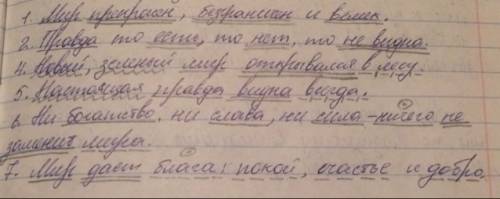 1. Мир прекрасен, безграничен и велик.
2. Правда то есть, то нет, то не видна.
4. Новый, зеленый мир открывался в лесу.
5. Настоящая правда видна всегда.
6. Ни богатство, ни слава, ни сила - ничего не
заменит мира.
7. Мир дает блага: покой, счастье и добро.